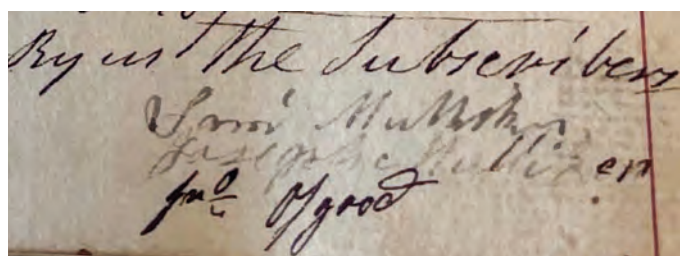 By us The Subscribers
Levi Mulliken
Joseph Mulliken
Jno Osgood